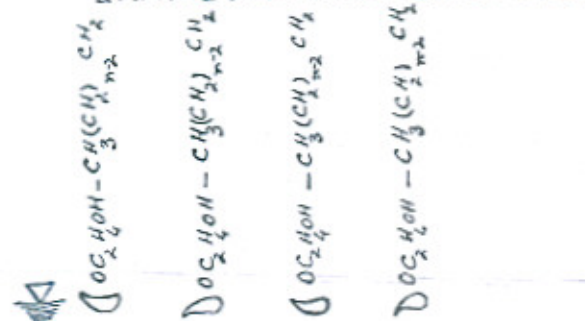 OC₂H₄OH – CH₃(CH₂)ₙ₋₂ CH₂
OC₂H₄OH – CH₃(CH₂)ₙ₋₂ CH₂
OC₂H₄OH – CH₃(CH₂)ₙ₋₂ CH₂
OC₂H₄OH – CH₃(CH₂)ₙ₋₂ CH₂